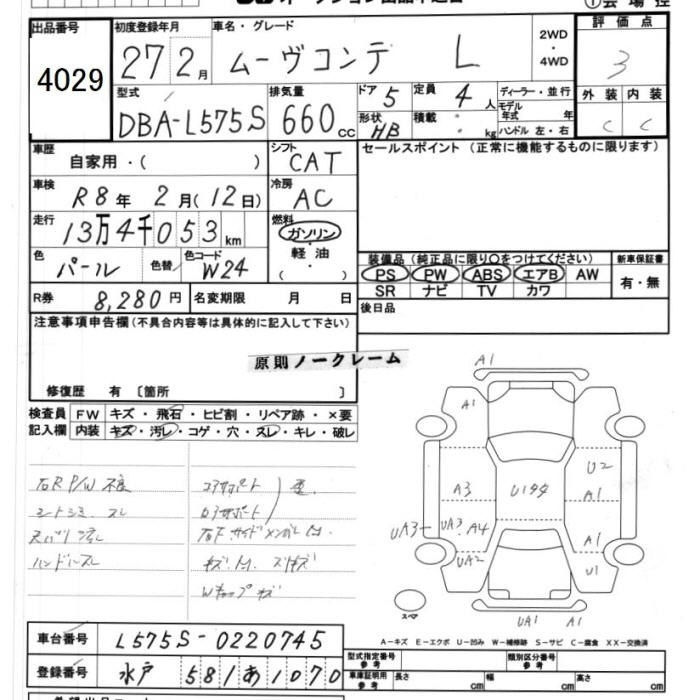 出品番号
4029
初度登録年月
27年2月
車名・グレード
ムーヴコンテ L
2WD
・
4WD
評価点
3
型式
DBA-L575S
排気量
660cc
ドア 5
形状 HB
定員 4人
積載 kg
ディーラー・並行
モデル年式 年
ハンドル 左・右
外装 内装
C C
車歴
自家用・( )
シフト
CAT
セールスポイント (正常に機能するものに限ります)
車検
R8年 2月(12日)
冷房
AC
走行
13万4千053km
燃料
ガソリン
・
軽油
・
( )
色
パール
色替
色コード
W24
装備品 (純正品に限り○をつけてください)
PS PW ABS エアB AW
SR ナビ TV カワ
新車保証書
有・無
R券 8,280円
名変期限 月 日
後日品
注意事項申告欄(不具合内容等は具体的に記入して下さい)
原則ノークレーム
修復歴 有 〔箇所 〕
検査員記入欄
FW キズ・飛石・ヒビ割・リペア跡・×要
内装 キズ・汚レ・コゲ・穴・スレ・キレ・破レ
右R P/W 不良
シートシミ スレ
コアサポート
ハンドルスレ
Wキャップキズ
A1
A1
U2
A3
Uタタ
A1
UA3
UA3 A4
A1
UA2
U1
スペア
UA1 A1
A-キズ E-エクボ U-凹み W-補修跡 S-サビ C-腐食 XX-交換済
車台番号
L575S-0220745
登録番号
水戸 581 あ 1070
型式指定番号
参考
類別区分番号
参考
車庫証明用
参考
長さ cm
幅 cm
高さ cm